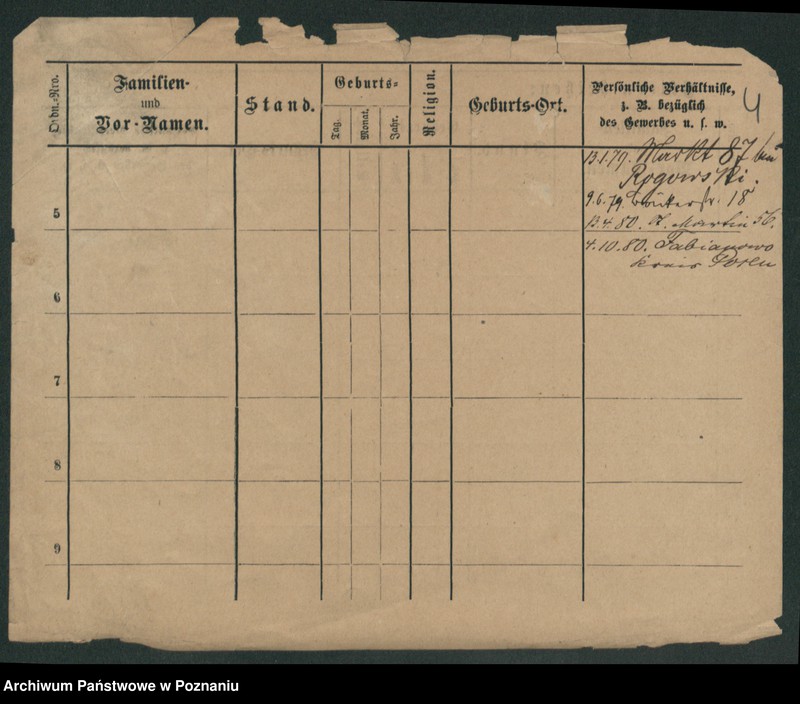 Ordn.-Nro.
Familien-
und
Vor-Namen.
Stand.
Geburts-
Tag.
Monat.
Jahr.
Religion.
Geburts-Ort.
Persönliche Verhältnisse,
z. B. bezüglich
des Gewerbes u. s. w.
4
13.1.79. Markt 87 bei
Rogowski.
9.6.79. 18
13.4.80. St. Martin 56.
4.10.80. Fabianowo
Kreis Posen
5
6
7
8
9
Archiwum Państwowe w Poznaniu